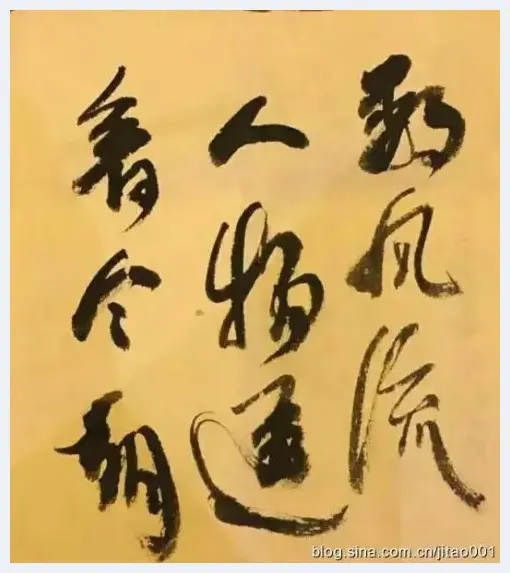 数风流
人物还
看今朝
blog.sina.com.cn/jitao001